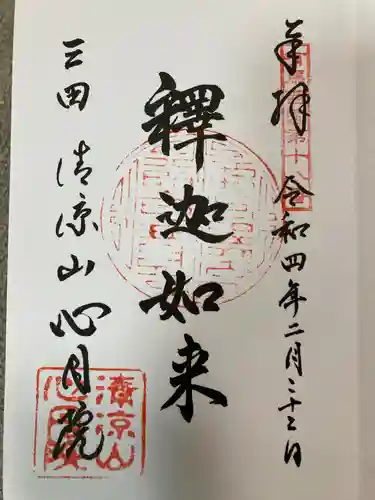 奉拝 令和四年二月二十三日
釋迦如来
三田 清凉山心月院
清凉山
心月院